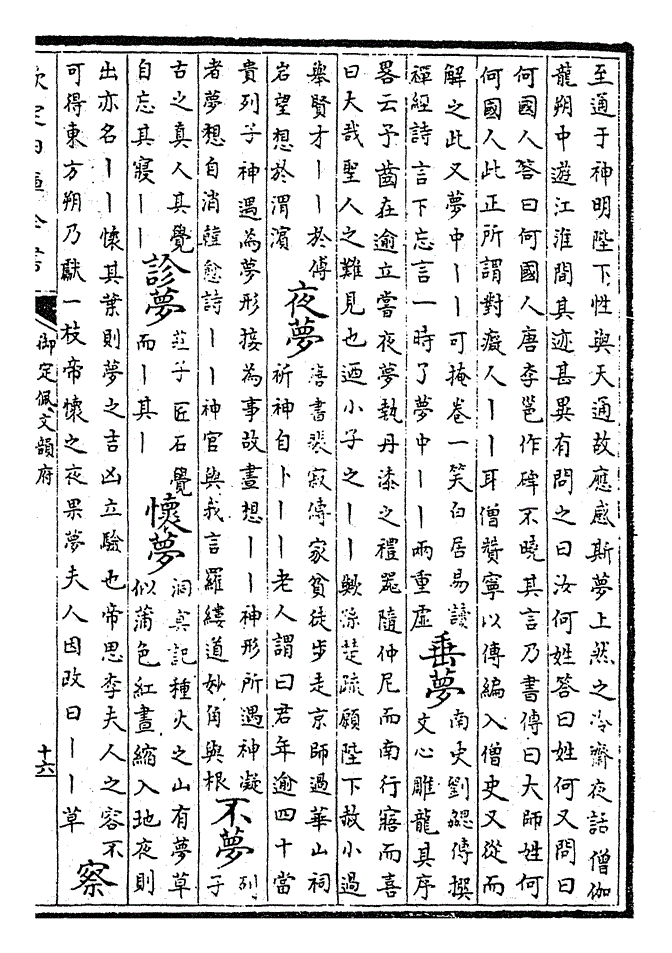 至通于神明陛下性與天通故應感斯夢上然之冷齋夜話僧伽
龍朔中遊江淮間其迹甚異有問之曰汝何姓答曰姓何又問曰
何國人答曰何國人唐李邕作碑不曉其言乃書傳曰大師姓何
何國人此正所謂對癡人丨丨耳僧贊寧以傳編入僧史又從而
解之此又夢中丨丨可掩卷一笑白居易讀
禪經詩言下忘言一時了夢中丨丨兩重虛
垂夢
南史劉勰傳撰
文心雕龍其序
畧云予齒在逾立嘗夜夢執丹漆之禮器隨仲尼而南行寤而喜
曰大哉聖人之難見也迺小子之丨丨歟孫楚疏願陛下赦小過
舉賢才丨丨於傅
岩望想於渭濵
夜夢
唐書裴寂傳家貧徒步走京師過華山祠
祈神自卜丨丨老人謂曰君年逾四十當
貴列子神遇為夢形接為事故晝想丨丨神形所遇神凝
者夢想自消韓愈詩丨丨神官與我言羅縷道妙角與根
不夢
列
子
古之真人其覺
自忘其寢丨丨
診夢
莊子匠石覺
而丨其丨
懷夢
洞冥記種火之山有夢草
似蒲色紅晝縮入地夜則
出亦名丨丨懷其葉則夢之吉凶立驗也帝思李夫人之容不
可得東方朔乃獻一枝帝懷之夜果夢夫人因改曰丨丨草
察
欽定四庫全書
御定佩文韻府
十六